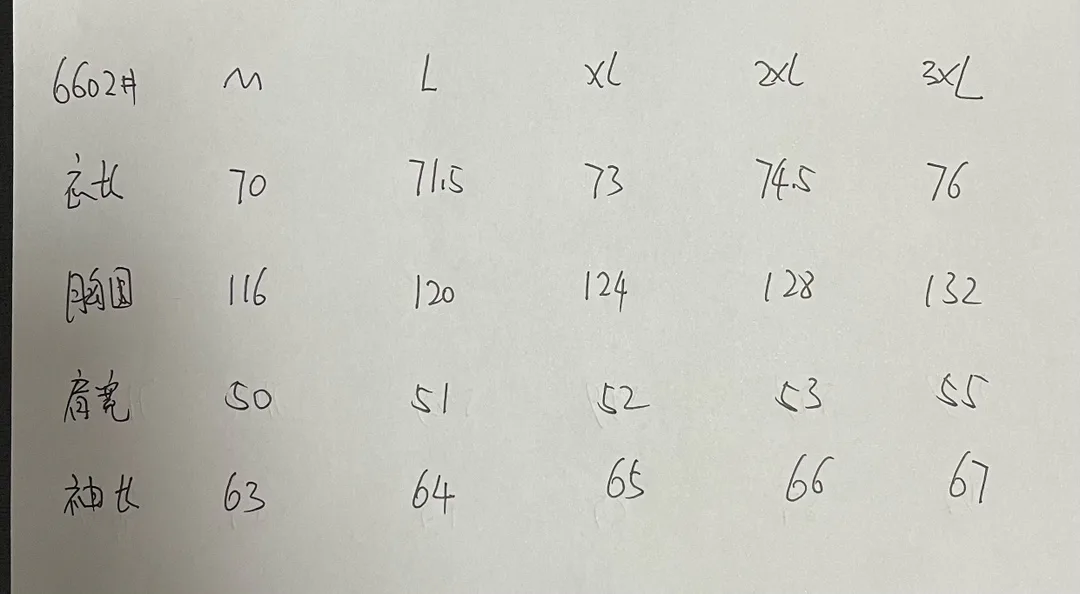 6602# M L XL 2XL 3XL
衣长 70 71.5 73 74.5 76
胸围 116 120 124 128 132
肩宽 50 51 52 53 55
袖长 63 64 65 66 67